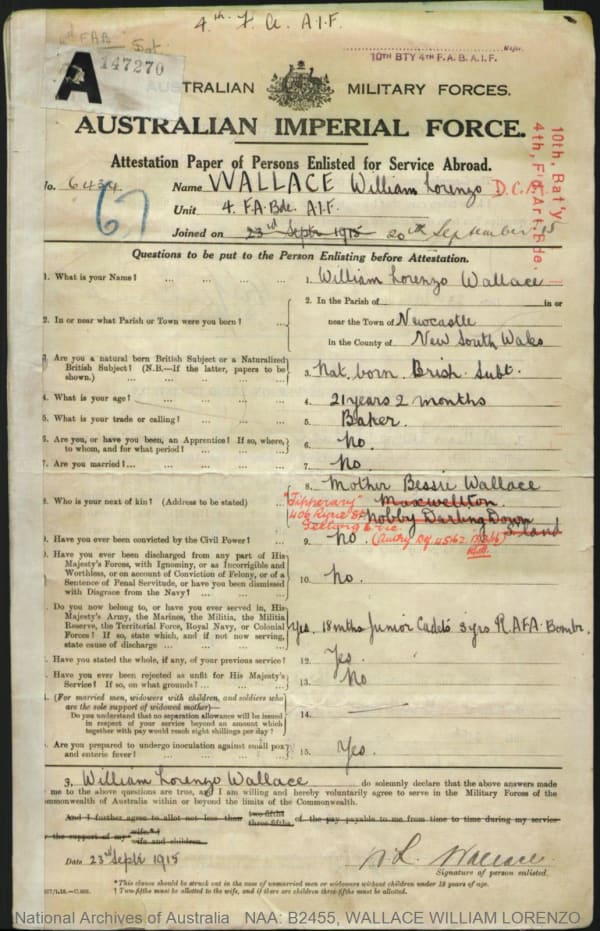 4th F.A. A.I.F.
FAB
147270
Major.
10TH BTY 4TH F.A.B. A.I.F.
A
AUSTRALIAN MILITARY FORCES.
AUSTRALIAN IMPERIAL FORCE.
Attestation Paper of Persons Enlisted for Service Abroad.
10th, Bat'y
4th, F. Art. Bde.
No. 6434 Name WALLACE William Lorenzo D.C.M.
67
Unit 4. F.A. Bde. A.I.F.
Joined on 23rd Septr 1915 20th September 15
Questions to be put to the Person Enlisting before Attestation.
1. What is your Name? ... ... ... 1. William Lorenzo Wallace
2. In or near what Parish or Town were you born? ... 2. In the Parish of in or
near the Town of Newcastle
in the County of New South Wales
3. Are you a natural born British Subject or a Naturalized
British Subject? (N.B.—If the latter, papers to be
shown.) ... ... ... ... 3. Nat. born Brish. Subt.
4. What is your age? ... ... ... 4. 21 years 2 months
5. What is your trade or calling? ... ... 5. Baker.
6. Are you, or have you been, an Apprentice? If so, where,
to whom, and for what period? ... ... 6. No.
7. Are you married? ... ... ... 7. No
8. Who is your next of kin? (Address to be stated) ... 8. Mother Bessie Wallace
"Tipperary" Maxwellton
406 Ryrie St Nobby Darling Down
Geelong E Vic Q'land
9. Have you ever been convicted by the Civil Power? ... 9. No. (Auth'y
10. Have you ever been discharged from any part of His
Majesty's Forces, with Ignominy, or as Incorrigible and
Worthless, or on account of Conviction of Felony, or of a
Sentence of Penal Servitude, or have you been dismissed
with Disgrace from the Navy? ... ... 10. No.
Do you now belong to, or have you ever served in, His
Majesty's Army, the Marines, the Militia, the Militia
Reserve, the Territorial Force, Royal Navy, or Colonial
Forces? If so, state which, and if not now serving,
state cause of discharge ... ... Yes. 18 mths Junior Cadets 3 yrs R.A.F.A. Bombr.
Have you stated the whole, if any, of your previous service? 12. Yes.
Have you ever been rejected as unfit for His Majesty's
Service? If so, on what grounds? ... ... 13. No
(For married men, widowers with children, and soldiers who
are the sole support of widowed mother)—
Do you understand that no separation allowance will be issued
in respect of your service beyond an amount which
together with pay would reach eight shillings per day? 14.
Are you prepared to undergo inoculation against small pox
and enteric fever? ... ... ... 15. Yes.
I, William Lorenzo Wallace do solemnly declare that the above answers made
me to the above questions are true, and I am willing and hereby voluntarily agree to serve in the Military Forces of the
Commonwealth of Australia within or beyond the limits of the Commonwealth.
And I further agree to allot not less than two-fifths three-fifths of the pay payable to me from time to time during my service
for the support of my wife.*†
wife and children.
Date 23rd Septr 1915 W L Wallace
Signature of person enlisted.
* This clause should be struck out in the case of unmarried men or widowers without children under 18 years of age.
† Two-fifths must be allotted to the wife, and if there are children three-fifths must be allotted.
National Archives of Australia NAA: B2455, WALLACE WILLIAM LORENZO